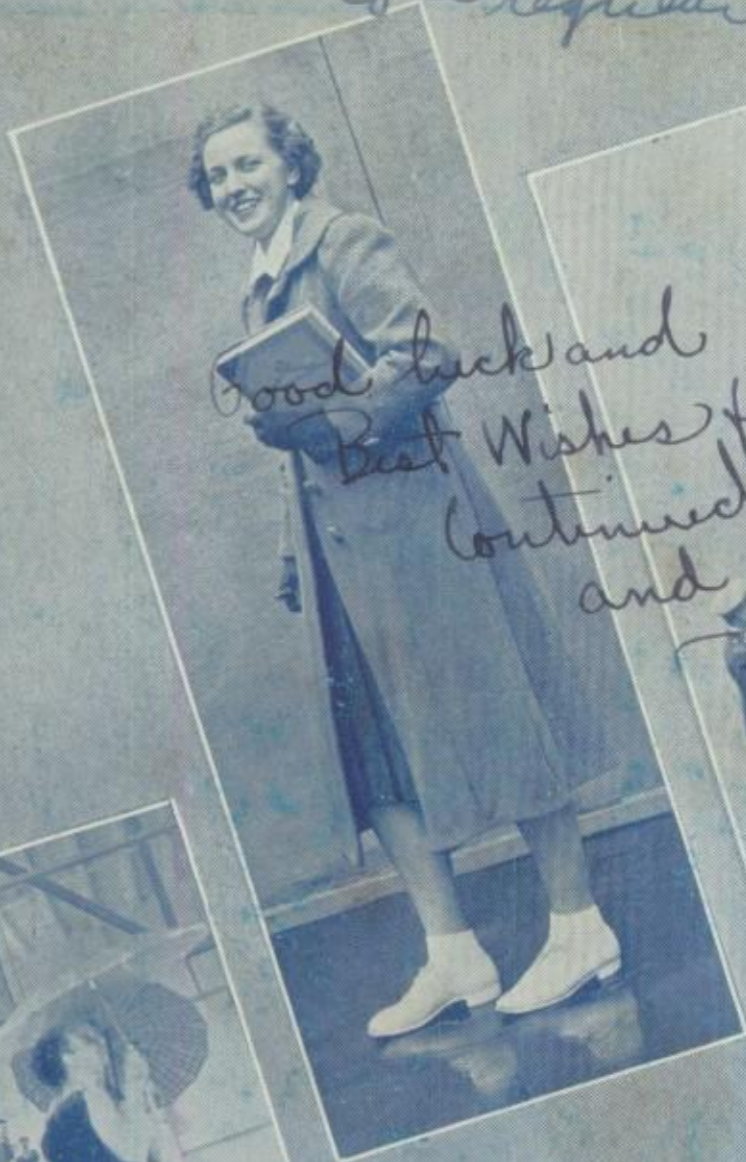 Good luck and
Best Wishes
Continued
and